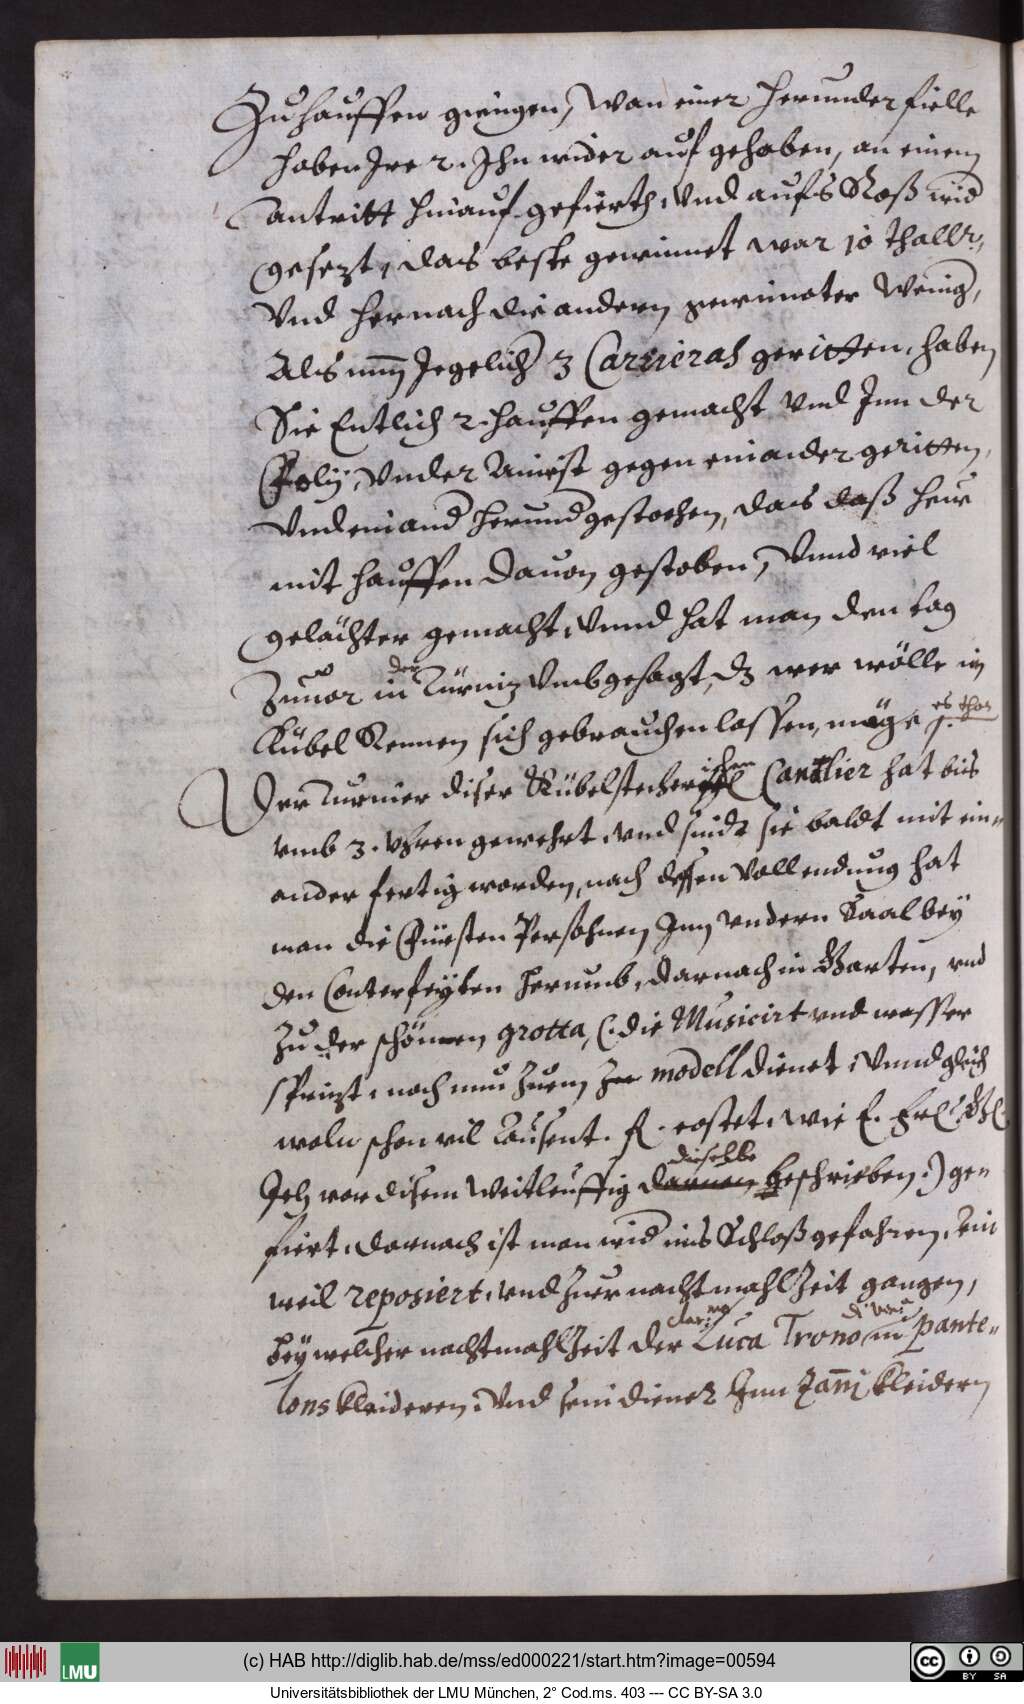 Zuhauffen giengen, Wan einer herunder fielle
haben Ire 2. Ihn wider auf gehoben, an einem
antritt hinauf gefüerth, Vnd aufs Roß wid
gesezt, das beste gewinnet war 10 thallr,
Vnd hernach die andern gewinater Wenig,
Als nun Jegelich 3 Carrieras geritten, haben
Sie Entlich 2. hauffen gemacht Vnd Inn der
Foly, Vnder gegen einander geritten,
Vnd einand herundgestochen, das daß heur
mit hauffen dauon gestoben, Vnnd viel
gelächter gemacht, Vnnd hat man den tag
Zuuor in der Türniz Vmbgesagt, dz wer wölle im
Kübel Rennen sich gebrauchen lassen, möge es thon
Der Turnier diser Kübelstecherischen Cauallier hat bis
vmb 3. vhren gewehrt, vnd sindt sie baldt mit ein-
ander fertig worden, nach dessen Vollendung hat
man die Fürsten Persohnen Inn vndern Saal bey
den Conterfeyten herumb, darnach in Garten, vnd
Zu der schönen grotta, (: die Musicirt vnd wasser
sprizt, noch nun Zuem modell dienet, Vnnd gleich
woln schon vil Tausent. fl. costet, wie E. Frl. Gl.
Ich vor disem Weitleuffig dieselbe beschrieben :) ge-
fiert, darnach ist man wid ins Schloß gefahren, ein
weil reposiert, vnd Zuer nachtmahlZeit gangen,
bey welcher nachtmahlZeit der clar:mo Luca Trono in pante-
lons kleideren, Vnd sein diener Inn Zanni kleidern
(c) HAB http://diglib.hab.de/mss/ed000221/start.htm?image=00594
LMU
cc BY SA
Universitätsbibliothek der LMU München, 2° Cod.ms. 403 --- CC BY-SA 3.0